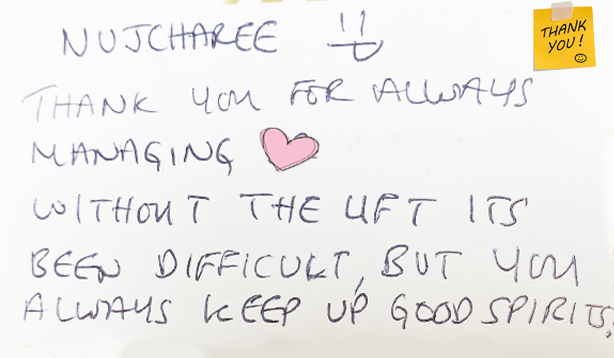 NUJCHAREE
THANK YOU!
THANK YOU FOR ALWAYS
MANAGING
WITHOUT THE LIFT ITS
BEEN DIFFICULT, BUT YOU
ALWAYS KEEP UP GOOD SPIRITS.